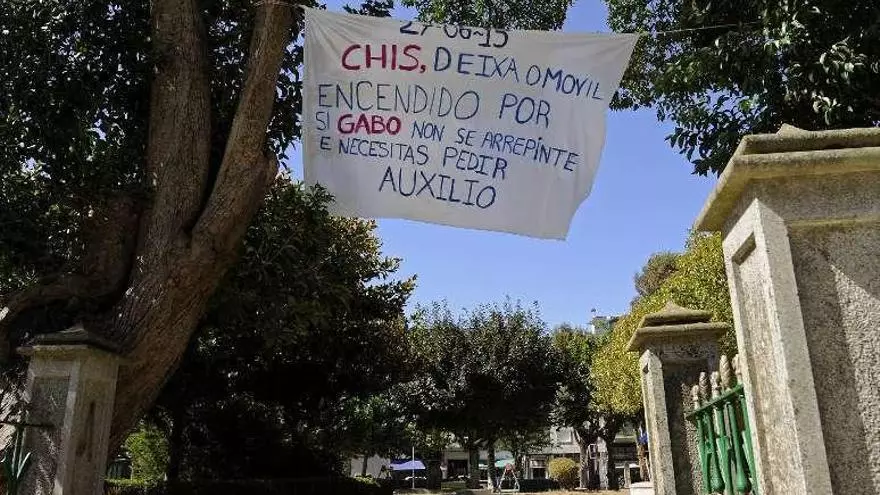 27-06-15
CHIS, DEIXA O MOVIL
ENCENDIDO POR
SI GABO NON SE ARREPINTE
E NECESITAS PEDIR
AUXILIO